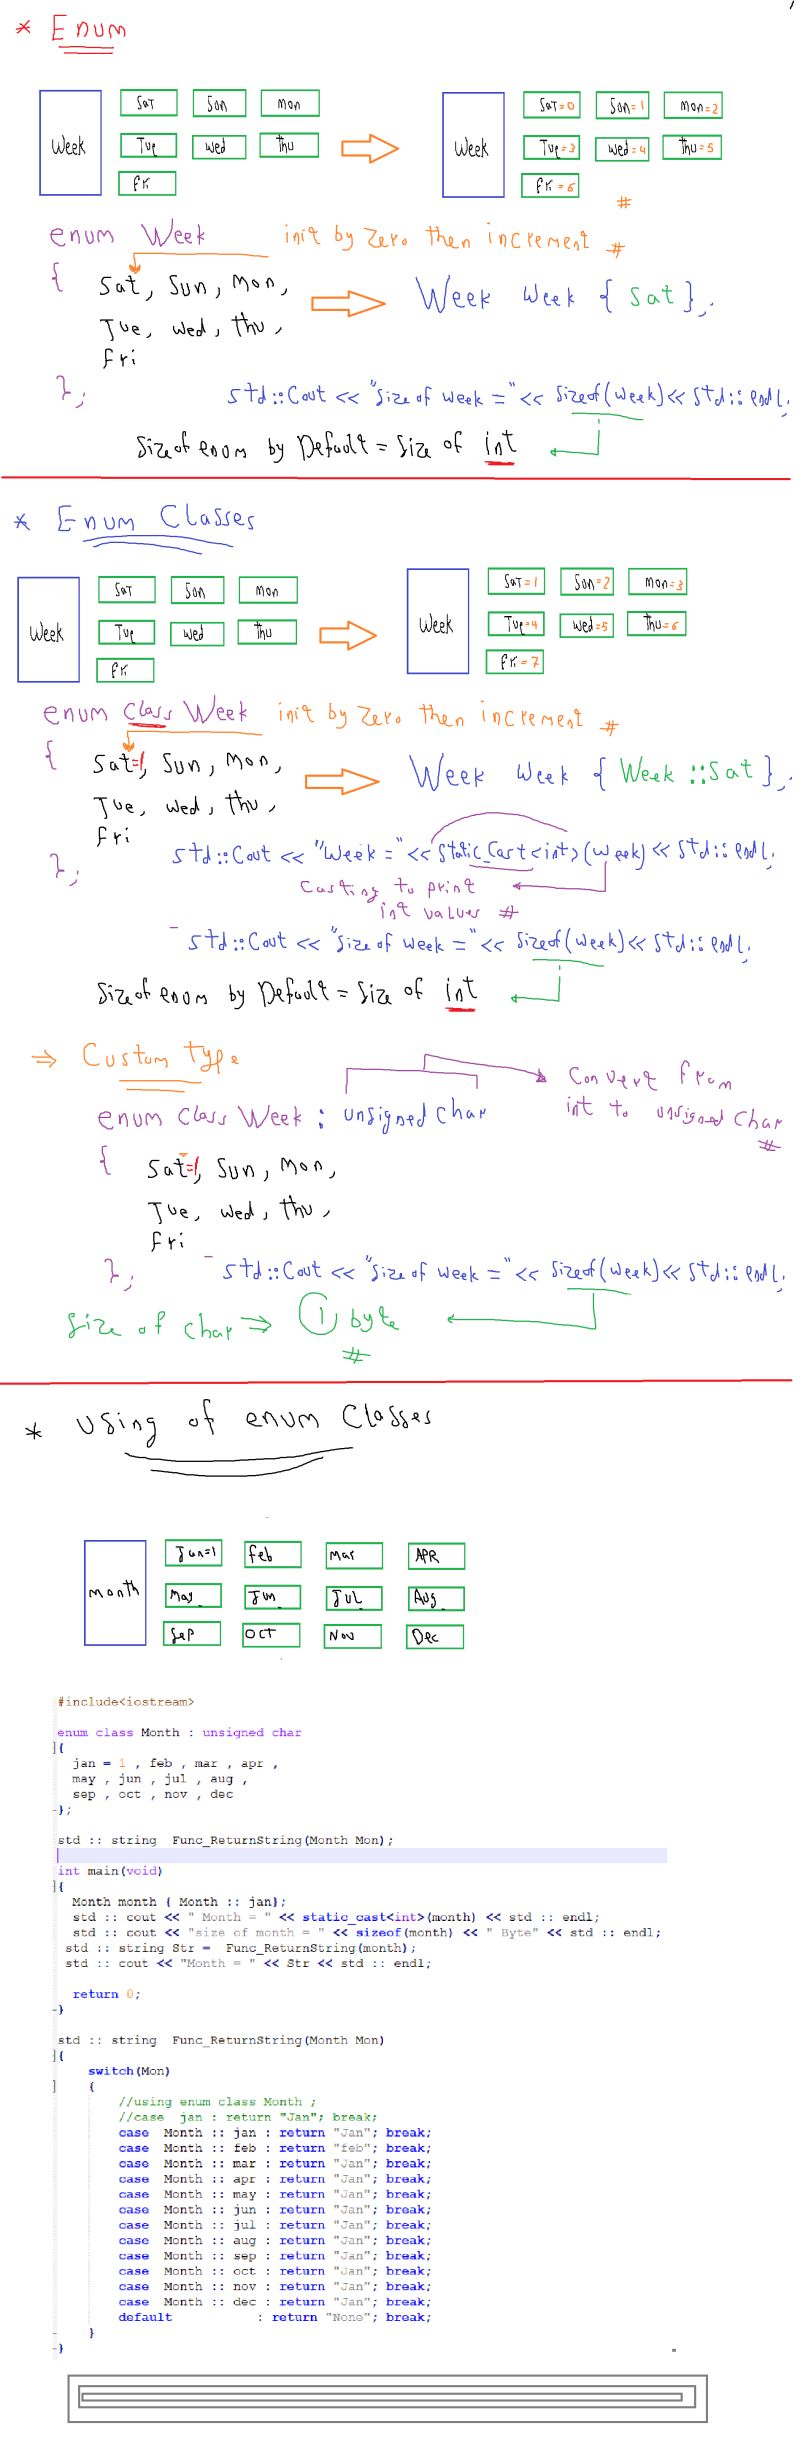 * Enum
Week
Sat Sun Mon
Tue wed thu
Fri
Week
Sat=0 Sun=1 Mon=2
Tue=3 wed=4 thu=5
Fri=6
#
enum Week init by Zero then increment #
{ Sat, Sun, Mon,
Tue, wed, thu,
Fri
};
Week Week { Sat };
std::Cout << "Size of week =" << Sizeof(week) << std::endl;
Size of enum by Default = Size of int
* Enum Classes
Week
Sat Sun Mon
Tue wed thu
Fri
Week
Sat=1 Sun=2 Mon=3
Tue=4 wed=5 thu=6
Fri=7
enum Class Week init by Zero then increment #
{ Sat=1, Sun, Mon,
Tue, wed, thu,
Fri
};
Week Week { Week ::Sat };
std::Cout << "Week =" << Static_Cast<int>(week) << std::endl;
Casting to print
int values #
std::Cout << "Size of week =" << Sizeof(week) << std::endl;
Size of enum by Default = Size of int
=> Custom type
enum Class Week : unsigned char
Convert from
int to unsigned char
#
{ Sat=1, Sun, Mon,
Tue, wed, thu,
Fri
};
std::Cout << "Size of week =" << Sizeof(week) << std::endl;
Size of char => 1 byte
#
* Using of enum Classes
month
Jan=1 Feb Mar APR
May Jun JUL Aug
Sep OCT Nov Dec
#include<iostream>
enum class Month : unsigned char
{
jan = 1 , feb , mar , apr ,
may , jun , jul , aug ,
sep , oct , nov , dec
};
std :: string Func_ReturnString(Month Mon);
int main(void)
{
Month month { Month :: jan};
std :: cout << " Month = " << static_cast<int>(month) << std :: endl;
std :: cout << "size of month = " << sizeof(month) << " Byte" << std :: endl;
std :: string Str = Func_ReturnString(month);
std :: cout << "Month = " << Str << std :: endl;
return 0;
}
std :: string Func_ReturnString(Month Mon)
{
switch(Mon)
{
//using enum class Month ;
//case jan : return "Jan"; break;
case Month :: jan : return "Jan"; break;
case Month :: feb : return "feb"; break;
case Month :: mar : return "Jan"; break;
case Month :: apr : return "Jan"; break;
case Month :: may : return "Jan"; break;
case Month :: jun : return "Jan"; break;
case Month :: jul : return "Jan"; break;
case Month :: aug : return "Jan"; break;
case Month :: sep : return "Jan"; break;
case Month :: oct : return "Jan"; break;
case Month :: nov : return "Jan"; break;
case Month :: dec : return "Jan"; break;
default : return "None"; break;
}
}